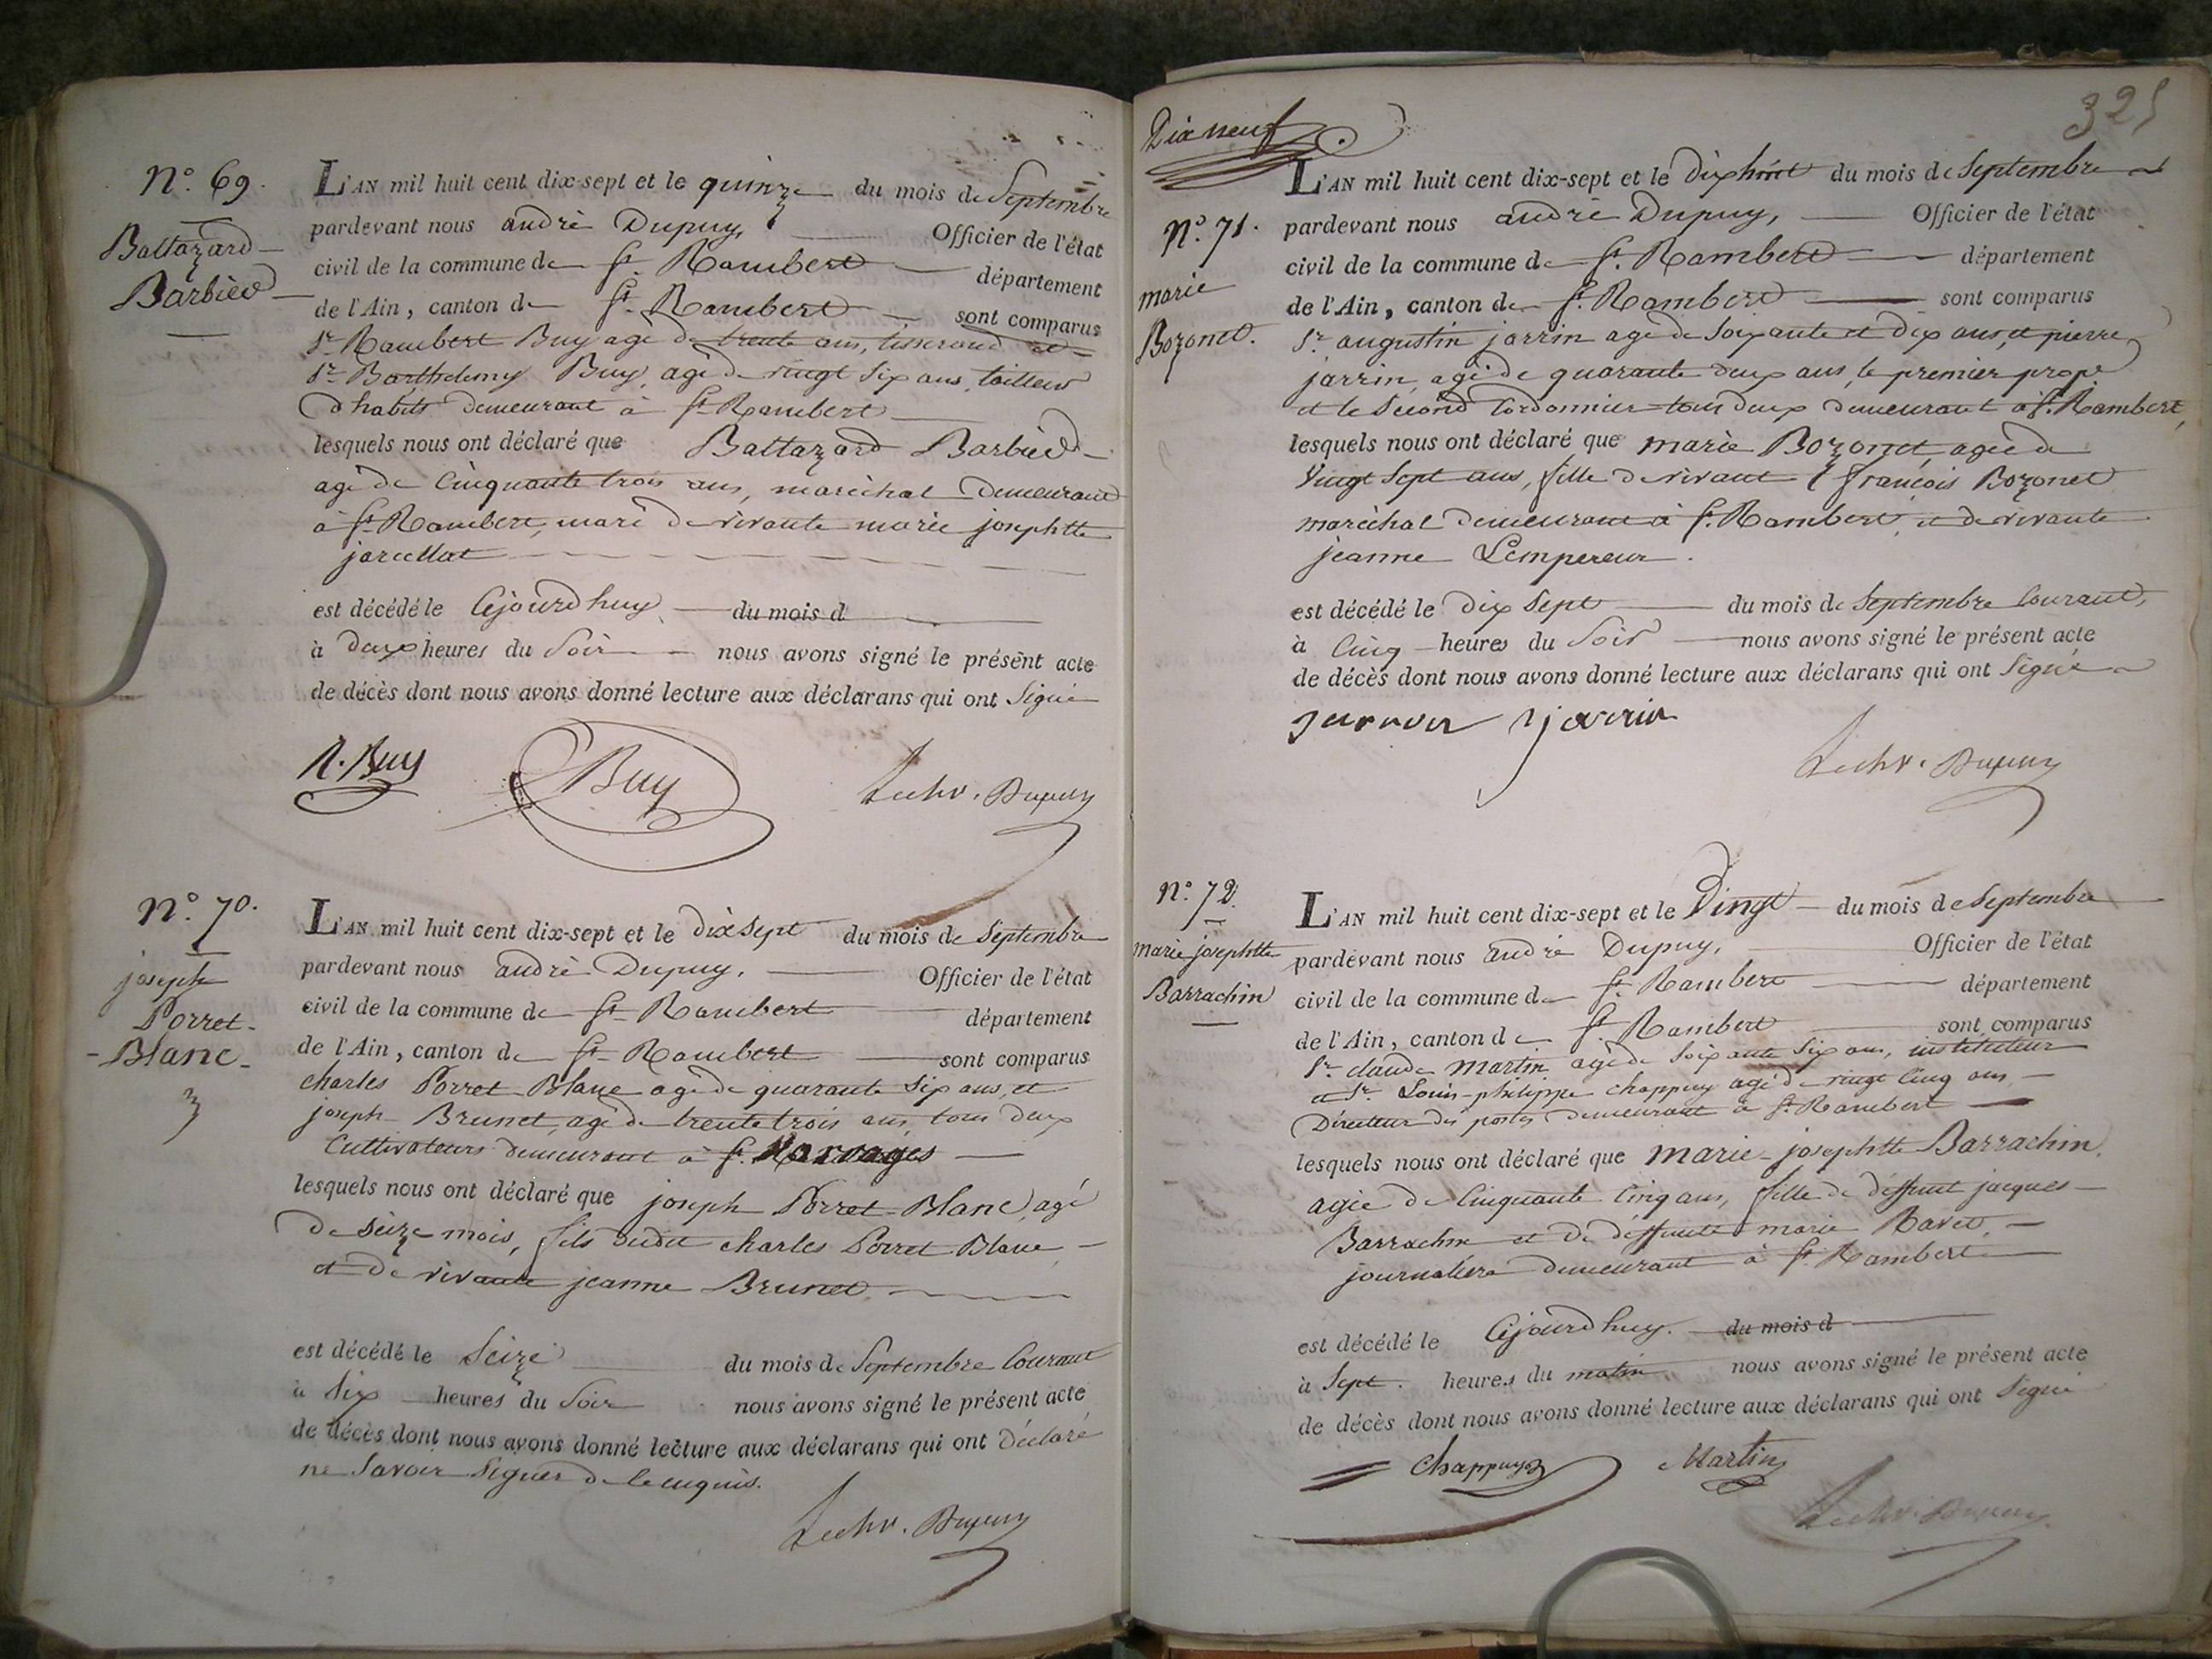 N.° 69.
Baltazard
Barbier
L'AN mil huit cent dix-sept et le quinze du mois de Septembre
pardevant nous andré Dupuy, Officier de l'état
civil de la commune de St. Rambert département
de l'Ain, canton de St. Rambert sont comparus
Sr. Rambert Buy agé de trente ans, tisserand et
Sr. Barthelemy Buy, agé de vingt six ans, tailleur
d'habits demeurant à St. Rambert
lesquels nous ont déclaré que Baltazard Barbier
agé de Cinquante trois ans, maréchal demeurant
à St. Rambert, mari de vivante marie josephtte
est décédé le Cejourd'huy du mois d
à deux heures du Soir nous avons signé le présent acte
de décès dont nous avons donné lecture aux déclarans qui ont Signé
R. Buy Buy Dupuy
N.° 70.
joseph
Porret-
-Blanc-
L'AN mil huit cent dix-sept et le dix Sept du mois de Septembre
pardevant nous andré Dupuy, Officier de l'état
civil de la commune de St. Rambert département
de l'Ain, canton de St. Rambert sont comparus
charles Porret-Blanc agé de quarante Six ans, et
joseph Brunet, agé de trente trois ans, tous deux
Cultivateurs demeurant à St.
lesquels nous ont déclaré que joseph Porret-Blanc, agé
de seize mois, fils dudit charles Porret Blanc
et de vivante jeanne Brunet
est décédé le Seize du mois de Septembre Courant
à Six heures du Soir nous avons signé le présent acte
de décès dont nous avons donné lecture aux déclarans qui ont déclaré
ne Savoir Signer de ce enquis.
Dupuy
325
Dix neuf
N.° 71.
marie
Bozonet.
L'AN mil huit cent dix-sept et le dix huit du mois de Septembre
pardevant nous andré Dupuy, Officier de l'état
civil de la commune de St. Rambert département
de l'Ain, canton de St. Rambert sont comparus
Sr. augustin jarrin agé de Soixante et dix ans, et pierre
jarrin, agé de quarante deux ans, le premier propre
et le Second Cordonnier tous deux demeurant à St. Rambert,
lesquels nous ont déclaré que marie Bozonet, agée de
Vingt Sept ans, fille de vivant françois Bozonet
maréchal demeurant à St. Rambert, et de vivante
jeanne Lempereur.
est décédé le dix Sept du mois de Septembre Courant,
à Cinq heures du Soir nous avons signé le présent acte
de décès dont nous avons donné lecture aux déclarans qui ont Signé
jarrin
Dupuy
N.° 72.
marie josephtte
Barrachin
L'AN mil huit cent dix-sept et le Vingt du mois de Septembre
pardevant nous andré Dupuy, Officier de l'état
civil de la commune de St. Rambert département
de l'Ain, canton de St. Rambert sont comparus
Sr. claude Martin agé de Soixante Six ans, instituteur
et Sr. Louis-philippe chappuy agé de vingt Cinq ans
Directeur des postes demeurant à St. Rambert
lesquels nous ont déclaré que marie-josephtte Barrachin,
agée de Cinquante Cinq ans, fille de deffunt jacques
Barrachin et de deffunte marie Ravet,
journaliere demeurant à St. Rambert
est décédé le Cejourd'huy. du mois d
à Sept. heures du matin nous avons signé le présent acte
de décès dont nous avons donné lecture aux déclarans qui ont Signé
Chappuy Martin
Dupuy